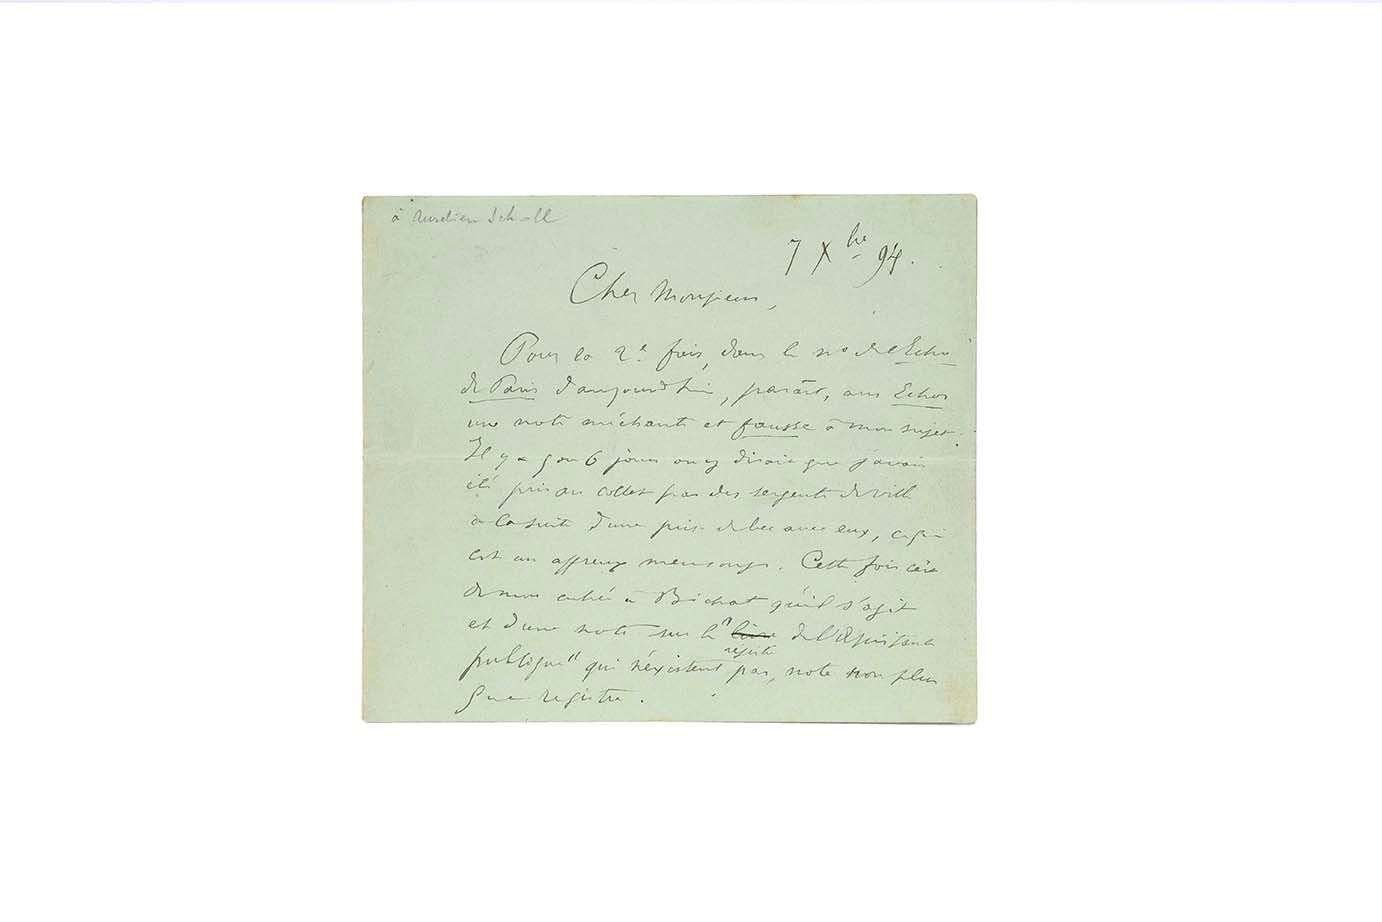 à Aurélien Scholl
7 Xbre 94.
Cher Monsieur,
Pour la 2e fois, dans le no de l'Echo
de Paris d'aujourd'hui, paraît, aux Echos
une note méchante et fausse à mon sujet.
Il y a 5 ou 6 jours on y disait que j'avais
été pris au collet par des sergents de ville
à la suite d'une prise de bec avec eux, ce qui
est un affreux mensonge. Cette fois c'est
de mon entrée à Bichat qu'il s'agit
et d'une note sur le "livre registre de l'Assistance
publique" qui n'existent pas, note non plus
que registre.